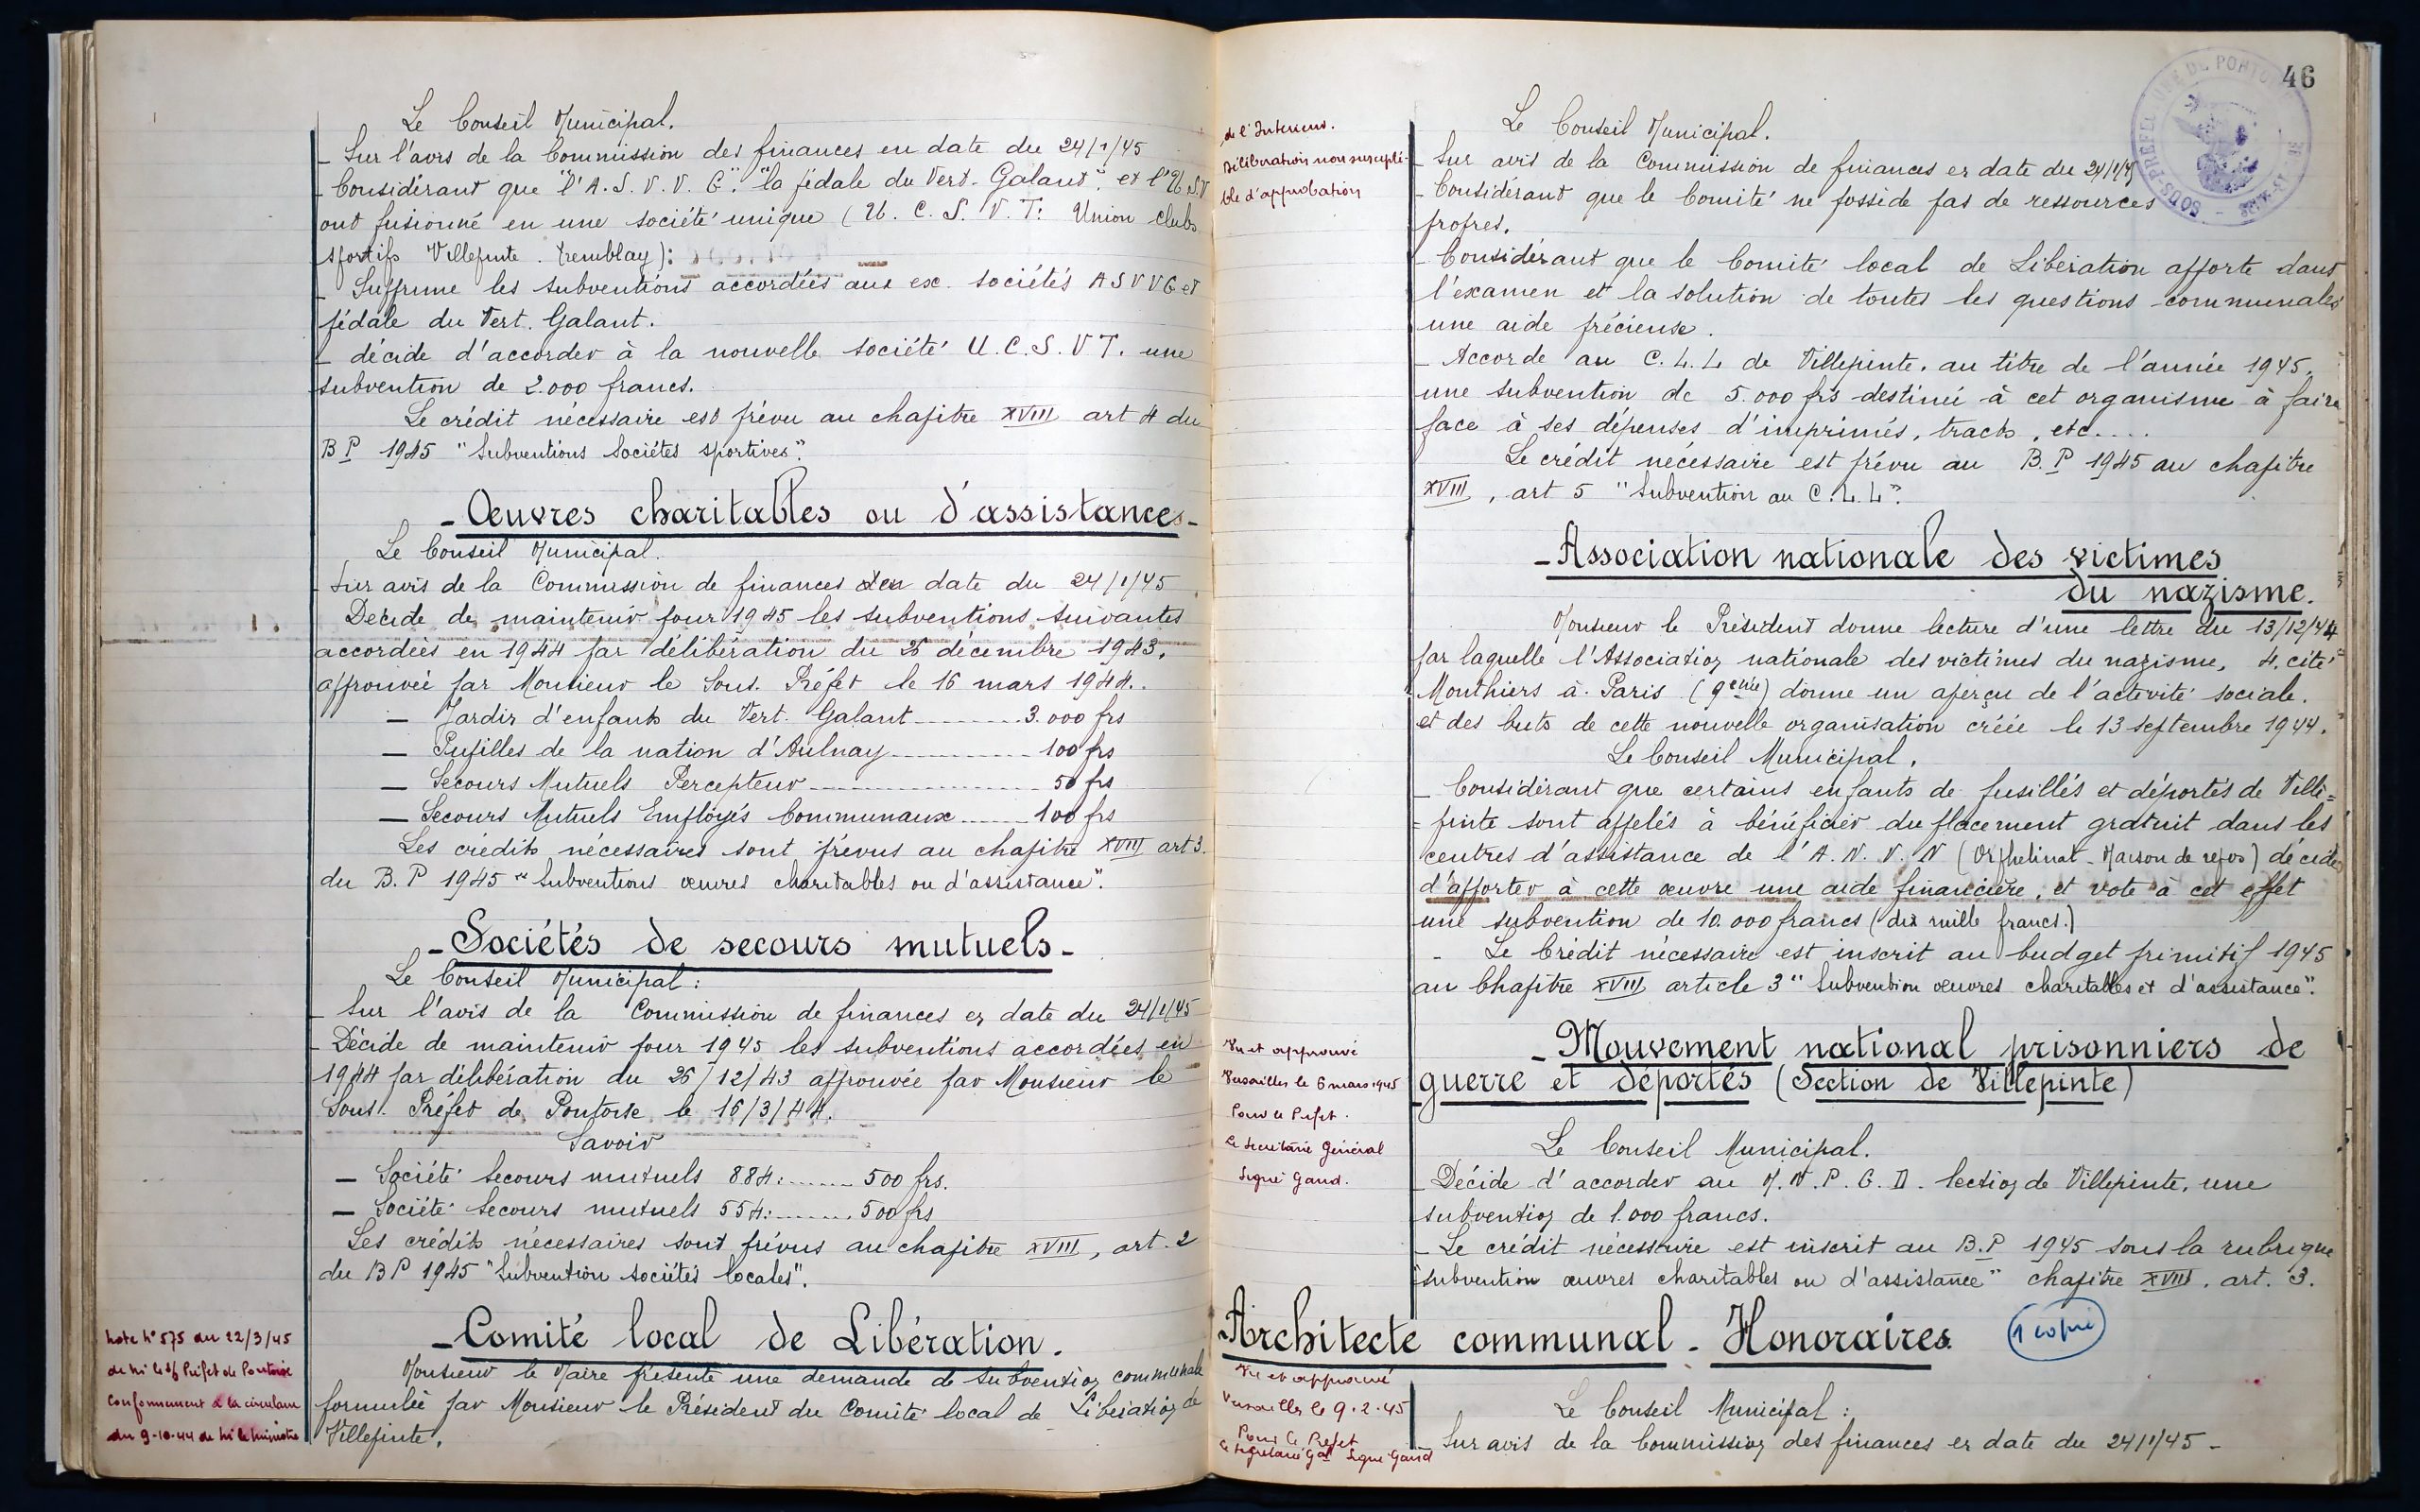 Le Conseil Municipal.
- Sur l'avis de la Commission des finances en date du 24/1/45
- Considérant que "l'A.S.V.V.G." "la pédale du Vert-Galant" et l'U.S.V
ont fusionné en une société unique (U.C.S.V.T: Union clubs
sportifs Villepinte. Tremblay):
- Supprime les subventions accordées aux ex. sociétés ASVVG et
pédale du Vert. Galant.
- décide d'accorder à la nouvelle société U.C.S.V T. une
subvention de 2.000 francs.
Le crédit nécessaire est prévu au chapitre XVIII art 4 du
B P 1945 "Subventions Sociétés sportives".
- Œuvres charitables ou d'assistances -
Le Conseil Municipal.
- Sur avis de la Commission de finances en date du 24/1/45
Décide de maintenir pour 1945 les subventions suivantes
accordées en 1944 par délibération du 26 décembre 1943,
approuvée par Monsieur le Sous. Préfet le 16 mars 1944.
- Jardin d'enfants du Vert. Galant 3.000 frs
- Pupilles de la nation d'Aulnay 100 frs
- Secours Mutuels Percepteur 50 frs
- Secours Mutuels Employés Communaux 100 frs
Les crédits nécessaires sont prévus au chapitre XVIII art 3.
du B.P 1945 "Subventions œuvres charitables ou d'assistance".
- Sociétés de secours mutuels -
Le Conseil Municipal:
- Sur l'avis de la Commission de finances en date du 24/1/45
- Décide de maintenir pour 1945 les subventions accordées en
1944 par délibération du 26/12/43 approuvée par Monsieur le
Sous. Préfet de Pontoise le 16/3/44.
Savoir
- Société Secours mutuels 884: 500 frs.
- Société Secours mutuels 554: 500 frs
Les crédits nécessaires sont prévus au chapitre XVIII, art. 2
du B P 1945 "Subvention sociétés locales".
- Comité local de Libération.
Monsieur le Maire présente une demande de subvention communale
formulée par Monsieur le Président du Comité local de Libération de
Villepinte.
Note N° 575 du 22/3/45
de Mr le s/s Préfet de Pontoise
Conformément à la circulaire
du 9-10-44 de Mr le Ministre
de l'Intérieur.
Délibération non suscepti-
ble d'approbation
46
SOUS-PREFECTURE DE PONTOISE
SEINE-ET-OISE
Le Conseil Municipal.
- Sur avis de la Commission de finances en date du 24/1/45
- Considérant que le Comité ne possède pas de ressources
propres.
- Considérant que le Comité local de Libération apporte dans
l'examen et la solution de toutes les questions communales
une aide précieuse.
- Accorde au C.L.L de Villepinte. au titre de l'année 1945.
une subvention de 5.000 frs destinée à cet organisme à faire
face à ses dépenses d'imprimés, tracts, etc....
Le crédit nécessaire est prévu au B.P 1945 au chapitre
XVIII, art 5 "Subvention au C.L.L".
- Association nationale des victimes
du nazisme.
Monsieur le Président donne lecture d'une lettre du 13/12/44
par laquelle l'Association nationale des victimes du nazisme, 4, cité
Monthiers à Paris (9ème) donne un aperçu de l'activité sociale.
et des buts de cette nouvelle organisation créée le 13 septembre 1944.
Le Conseil Municipal,
- Considérant que certains enfants de fusillés et déportés de Ville=
= pinte sont appelés à bénéficier du placement gratuit dans les
centres d'assistance de l'A.N.V.N (Orphelinat - Maison de repos) décide
d'apporter à cette œuvre une aide financière, et vote à cet effet
une subvention de 10.000 francs (dix mille francs.)
- Le Crédit nécessaire est inscrit au budget primitif 1945
au Chapitre XVIII article 3 "Subvention œuvres charitables et d'assistance".
- Mouvement national prisonniers de
guerre et déportés (Section de Villepinte)
Vu et approuvé
Versailles le 6 mars 1945
Pour le Préfet.
Le Secrétaire Général
Signé Gaud.
Le Conseil Municipal.
- Décide d'accorder au M.N.P.G.D. Section de Villepinte, une
subvention de 1.000 francs.
- Le crédit nécessaire est inscrit au B.P 1945 sous la rubrique
"subvention œuvres charitables ou d'assistance" chapitre XVIII, art. 3.
- Architecte communal - Honoraires.
1 copie
Vu et approuvé
Versailles le 9.2.45
Pour le Préfet
Le Secrétaire Gal Signé Gaud
Le Conseil Municipal:
- Sur avis de la Commission des finances en date du 24/1/45 -